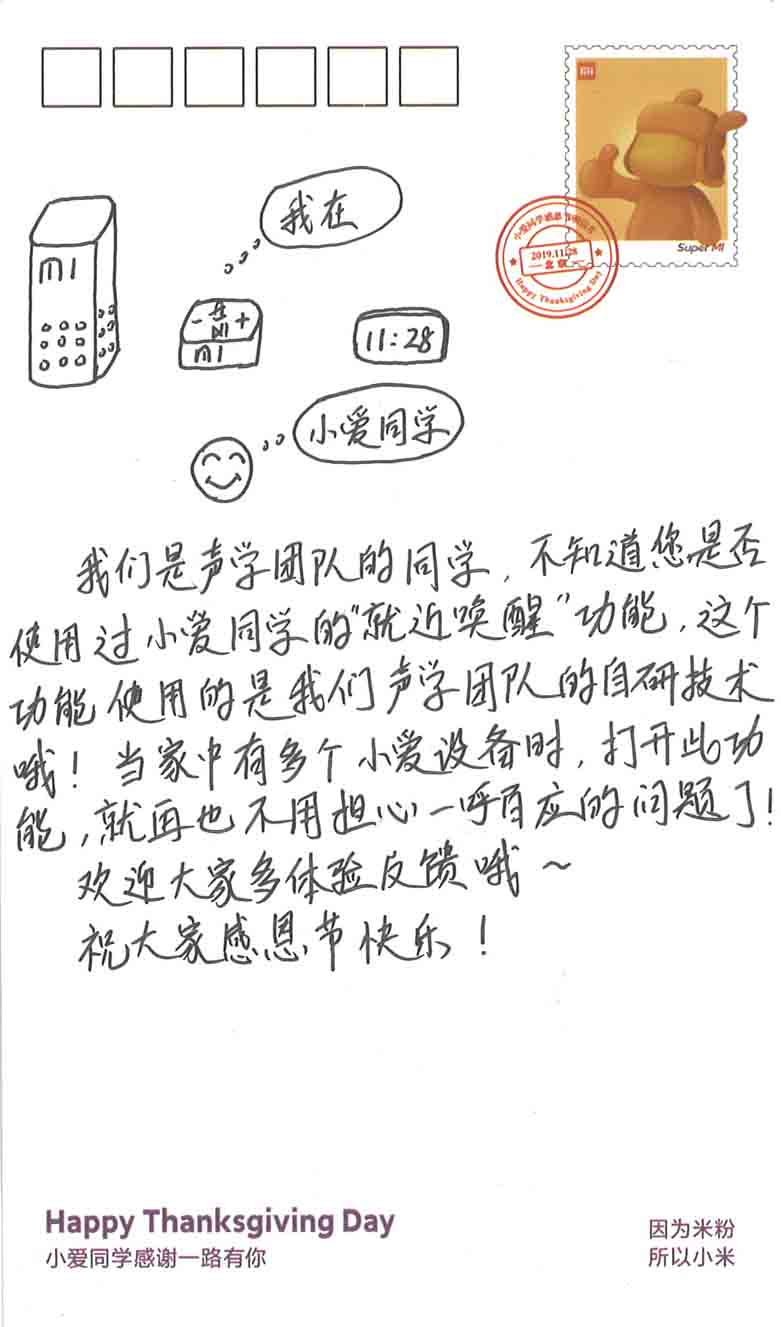 MI
Super MI
小爱同学感恩节明信片
2019.11.28
北京
Happy Thanksgiving Day
我在
MI
- +
MI
11:28
小爱同学
我们是声学团队的同学,不知道您是否
使用过小爱同学的“就近唤醒”功能,这个
功能使用的是我们声学团队的自研技术
哦!当家中有多个小爱设备时,打开此功
能,就再也不用担心一呼百应的问题了!
欢迎大家多体验反馈哦~
祝大家感恩节快乐!
Happy Thanksgiving Day
小爱同学感谢一路有你
因为米粉
所以小米